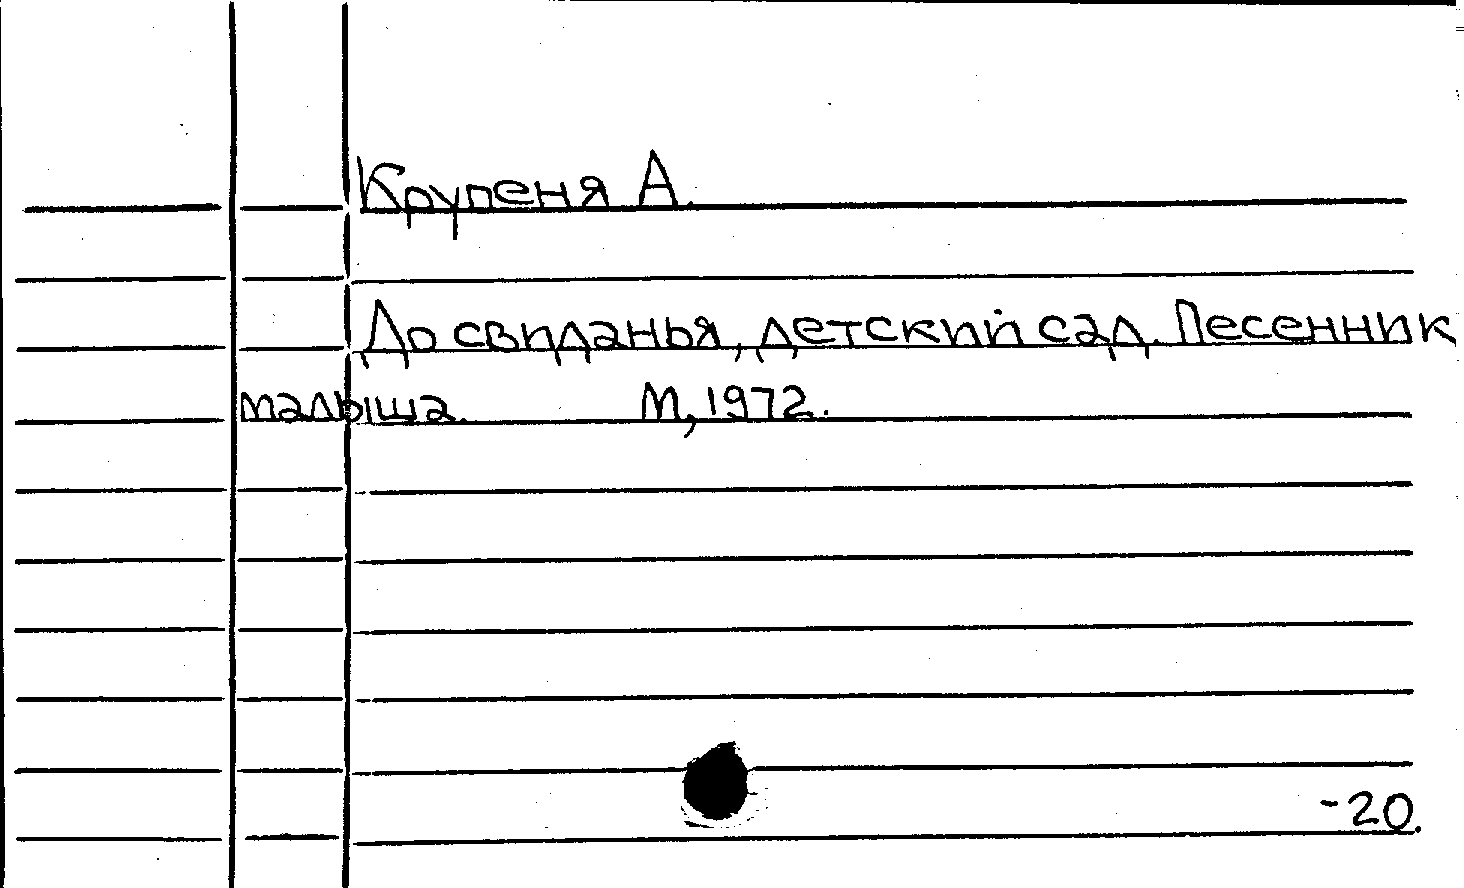 Крупеня А.
До свиданья, детский сад. Песенник
малыша. М, 1972.
-20.